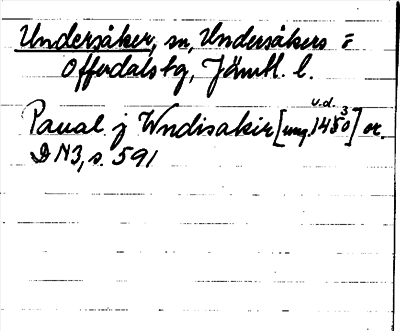 Undersåker, sn, Undersåkers =
Offerdals tg, Jämtl. l.
v.d. 3
Paual j Wndisakir [omg 1450] or.
DN3, s. 591